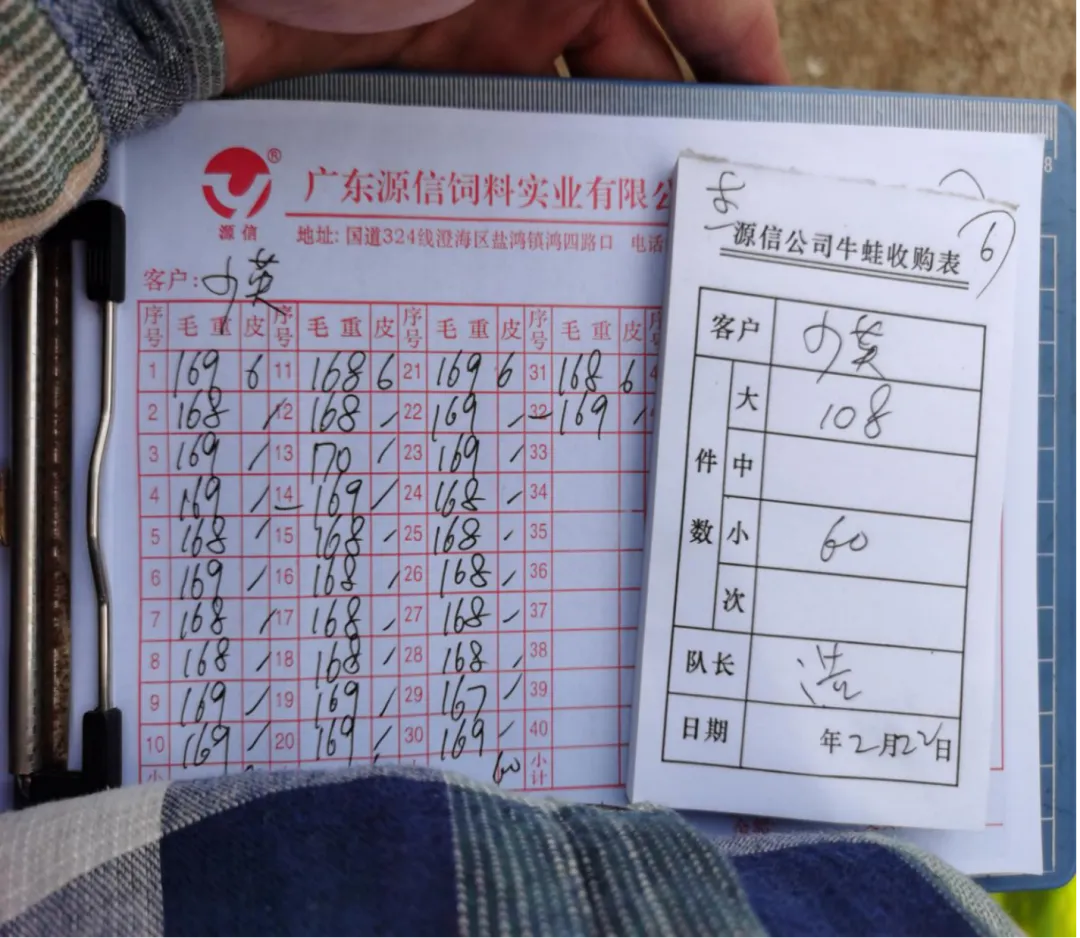 ®
源信
广东源信饲料实业有限公
地址: 国道324线澄海区盐鸿镇鸿四路口 电话
客户: 小英
序号 毛重 皮 序号 毛重 皮 序号 毛重 皮 序号 毛重 皮 序号
1 169 6 11 168 6 21 169 6 31 168 6 4
2 168 / 12 168 / 22 169 / 32 169 /
3 169 / 13 170 / 23 169 / 33
4 169 / 14 169 / 24 168 / 34
5 168 / 15 168 / 25 168 / 35
6 169 / 16 168 / 26 168 / 36
7 168 / 17 168 / 27 168 / 37
8 168 / 18 168 / 28 168 / 38
9 169 / 19 169 / 29 167 / 39
10 169 / 20 169 / 30 169 / 40
小 60 小计
8
6
源信公司牛蛙收购表
客户 小英
件数
大 108
中
小 60
次
队长 浩
日期 年2月22日